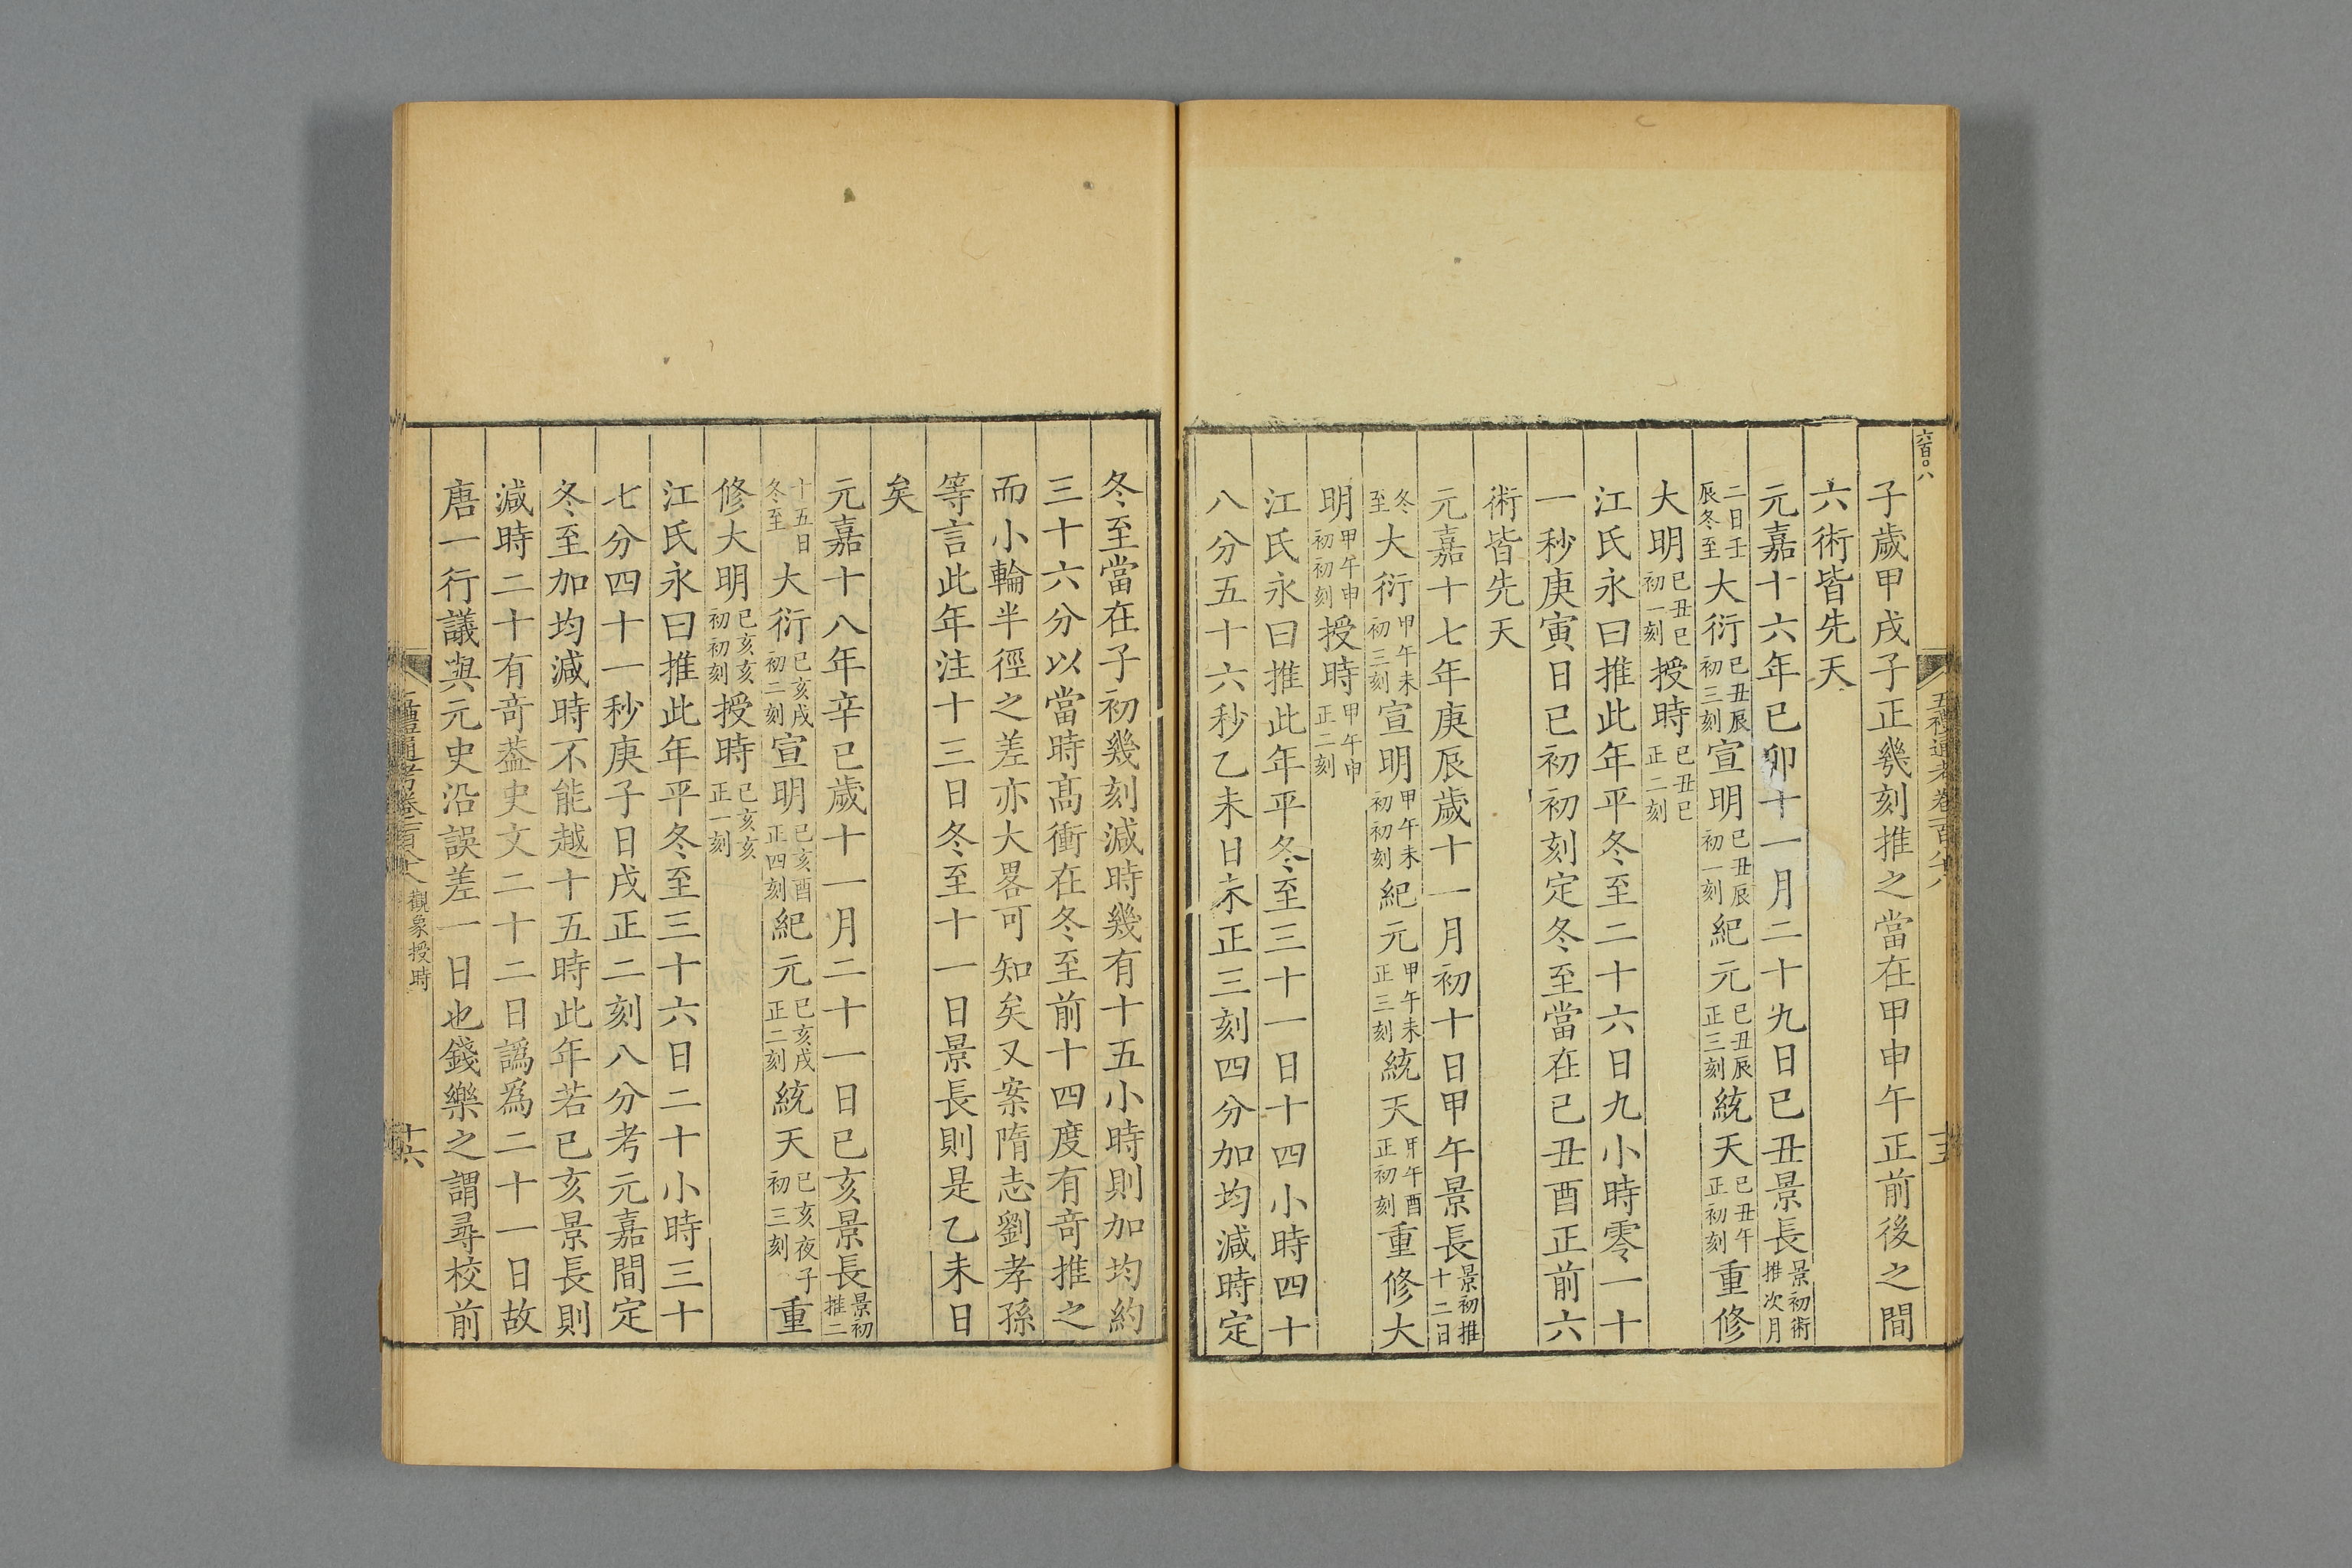 六百〇八
五禮通考卷一百八十八
十五
子歲甲戌子正幾刻推之當在甲申午正前後之間
六術皆先天
元嘉十六年己卯十一月二十九日己丑景長景初術推次月
二日壬辰冬至大衍己丑辰初三刻宣明己丑辰初一刻紀元己丑辰正三刻統天己丑午正初刻重修
大明己丑巳初一刻授時己丑巳正二刻
江氏永曰推此年平冬至二十六日九小時零一十
一秒庚寅日巳初初刻定冬至當在己丑酉正前六
術皆先天
元嘉十七年庚辰歲十一月初十日甲午景長景初推十二日
冬至大衍甲午未初三刻宣明甲午未初初刻紀元甲午未正三刻統天甲午酉正初刻重修大
明甲午申初初刻授時甲午申正二刻
江氏永曰推此年平冬至三十一日十四小時四十
八分五十六秒乙未日未正三刻四分加均減時定
冬至當在子初幾刻減時幾有十五小時則加均約
三十六分以當時高衝在冬至前十四度有奇推之
而小輪半徑之差亦大畧可知矣又案隋志劉孝孫
等言此年注十三日冬至十一日景長則是乙未日
矣
元嘉十八年辛巳歲十一月二十一日己亥景長景初推二
十五日冬至大衍己亥戌初二刻宣明己亥酉正四刻紀元己亥戌正二刻統天己亥夜子初三刻重
修大明己亥亥初初刻授時己亥亥正一刻
江氏永曰推此年平冬至三十六日二十小時三十
七分四十一秒庚子日戌正二刻八分考元嘉間定
冬至加均減時不能越十五時此年若己亥景長則
減時二十有奇葢史文二十二日譌爲二十一日故
唐一行議與元史沿誤差一日也錢樂之謂尋校前
五禮通考卷一百八十八
觀象授時
十六